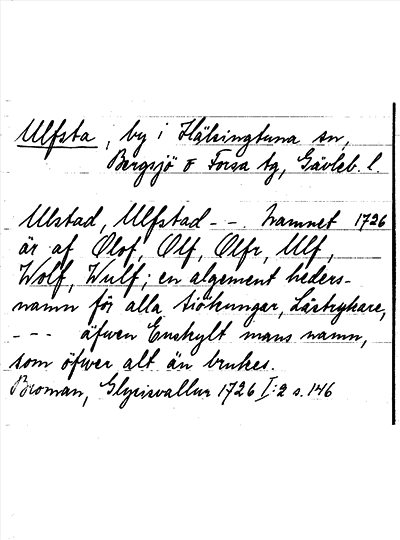 Ulfsta, by i Hälsingtuna sn,
Bergsjö o Forsa tg, Gävleb. l.
Ulstad, Ulfstad - - . Namnet 1726
är af Olof, Olf, Olfr, Ulf,
Wolf, Wulf; en algement heders-
namn för alla Siökungar, Låstrykare,
- - - äfwen Enskylt mans namn,
som öfwer alt än brukes.
Broman, Glysisvallur 1726 I:2 s. 146